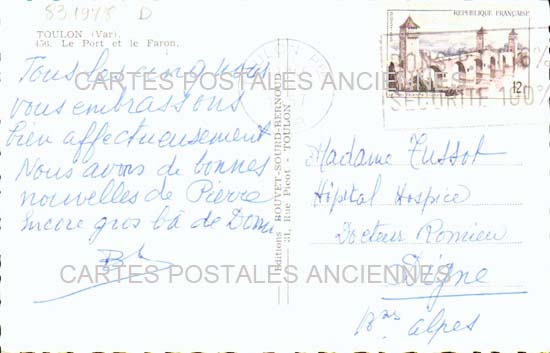 831978 D
TOULON (Var).
456. Le Port et le Faron.
Tous les cinq nous
vous embrassons
bien affectueusement
Nous avons de bonnes
nouvelles de Pierre
Encore gros bá de Domi
Editions ROUVET-SOURD-BERNOUD
31, Rue Picot - TOULON
REPUBLIQUE FRANÇAISE
12F
SÉCURITÉ 100%
Madame Tussot
Hôpital Hospice
Docteur Romieu
Digne
Bses Alpes
CARTES POSTALES ANCIENNES
CARTES POSTALES ANCIENNES